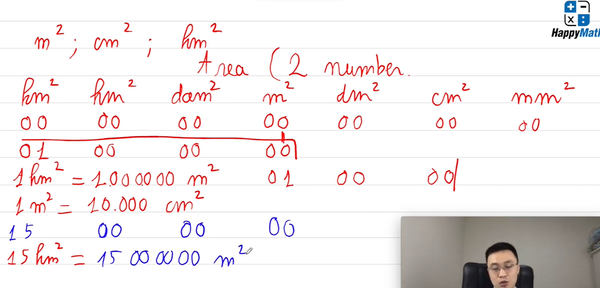 m²; cm²; km²
Area (2 number.
km² hm² dam² m² dm² cm² mm²
00 00 00 00 00 00 00
01 00 00 00
1km² = 1.000000 m² 01 00 00
1m² = 10.000 cm²
15 00 00 00
15km² = 15 000000 m²
HappyMath